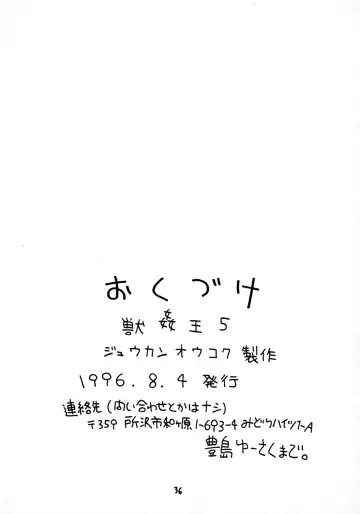 おくづけ
獣姦王5
ジュウカンオウコク 製作
1996.8.4 発行
連絡先(問い合わせとかはナシ)
〒359 所沢市和ヶ原1-693-4 みどりハイツ1-A
豊島 ゆーさくまで。
36